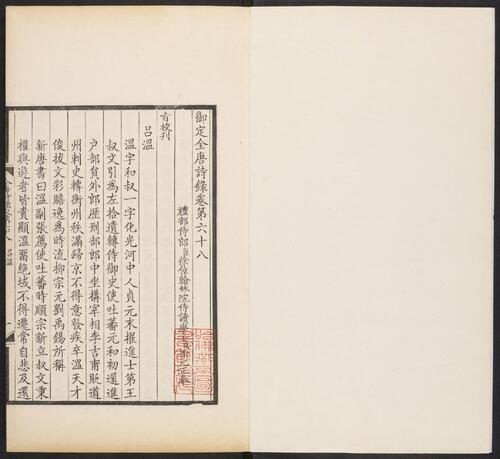 御定全唐詩錄卷第六十八
禮部侍郎臣徐倬翰林院侍讀學士
旨校刋
呂溫
溫字和叔一字化光河中人貞元末擢進士第王
叔文引為左拾遺轉侍御史使吐蕃元和初還進
户部員外郎歷刑部郎中坐搆宰相李吉甫貶道
州刺史轉衡州秩滿歸京不得意發疾卒溫天才
俊拔文彩贍逸為時流柳宗元劉禹錫所稱
新唐書曰溫副張薦使吐蕃時順宗新立叔文秉
權與遊者皆貴顯溫畱絶域不得遷常自悲及還
呂溫
一